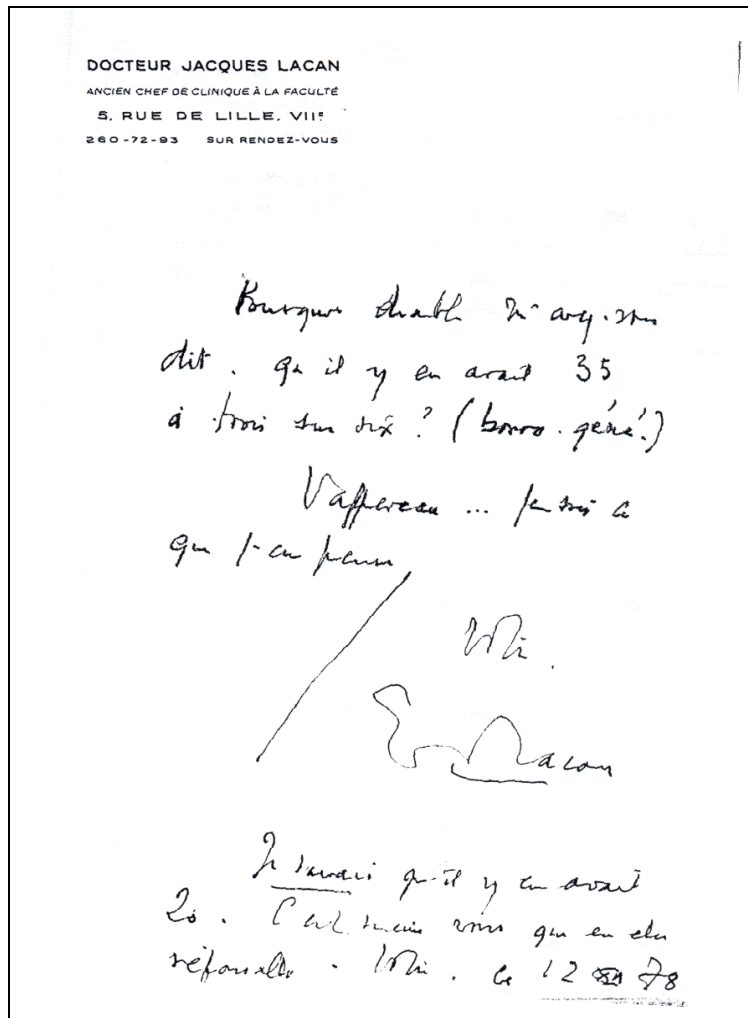 DOCTEUR JACQUES LACAN
ANCIEN CHEF DE CLINIQUE À LA FACULTÉ
5, RUE DE LILLE, VIIe
260-72-93 SUR RENDEZ-VOUS
Pourquoi diable m'avez-vous
dit . qu'il y en avait 35
à trois sur six ? (borro. géné.)
Vappereau ... j'en suis à
que j'en pense
Votre .
Lacan
Je savais qu'il y en avait
20 . C'est vous que en
. Votre . le 12 78